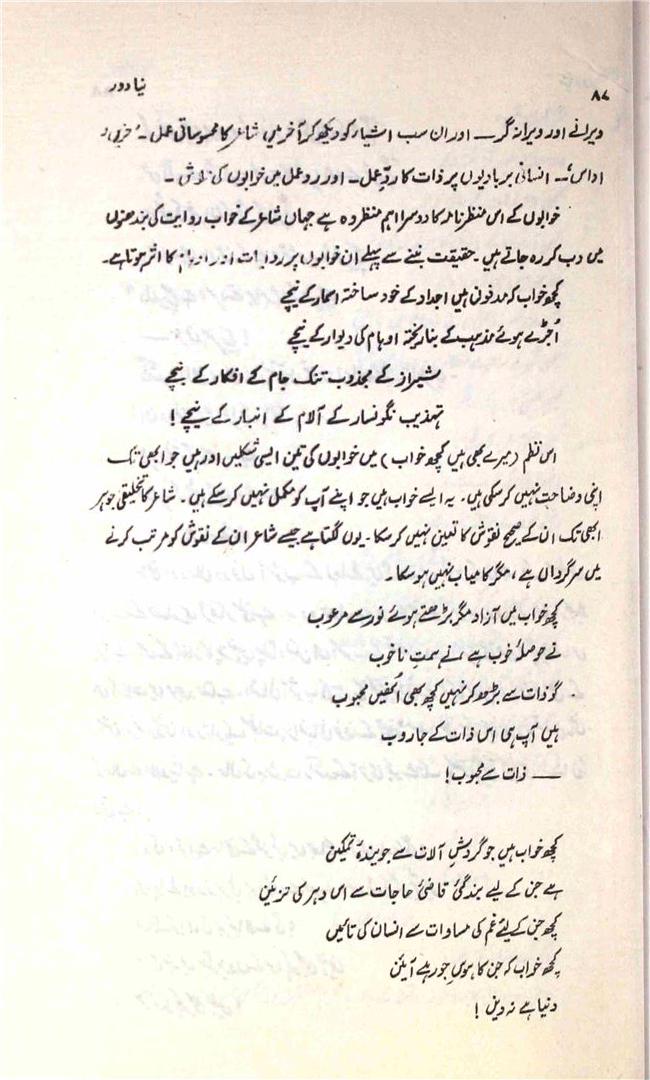 ۸۷
نیا دور
ویرانے اور ویرانہ گر — اور ان سب اشیاء کو دیکھ کر آخر میں شاعر کا محسوساتی عمل ۔
اداسی ۔ انسانی بربادیوں پر ذات کا ردِ عمل ۔ اور رد عمل میں خوابوں کی تلاش ۔
خوابوں کے اس منظر نامہ کا دوسرا اہم منظر وہ ہے جہاں شاعر کے خواب روایت کی بندھنوں
میں دب کر رہ جاتے ہیں ۔ حقیقت بننے سے پہلے ان خوابوں پر روایات اور اوہام کا اثر ہوتا ہے ۔
کچھ خواب کہ مدفون ہیں اجداد کے خود ساختہ اسمار کے نیچے
اُجڑے ہوئے مذہب کے بنا ریختہ اوہام کی دیوار کے نیچے
شیراز کے مجذوب تنک جام کے افکار کے نیچے
تہذیب نگونسار کے آلام کے انبار کے نیچے !
اس نظم (میرے بھی ہیں کچھ خواب) میں خوابوں کی تین ایسی شکلیں اور ہیں جو ابھی تک
اپنی وضاحت نہیں کر سکی ہیں ۔ یہ ایسے خواب ہیں جو اپنے آپ کو مکمل نہیں کر سکے ہیں ۔ شاعر کا تخلیقی جوہر
ابھی تک ان کے صحیح نقوش کا تعین نہیں کر سکا ۔ یوں لگتا ہے جیسے شاعر ان کے نقوش کو مرتب کرنے
میں سرگرداں ہے ، مگر کامیاب نہیں ہو سکا ۔
کچھ خواب ہیں آزاد مگر بڑھتے ہوئے نور سے مرعوب
نے حوصلۂ خوب ہے ، نے ہمتِ ناخوب
گو ذات سے بڑھ کر نہیں کچھ بھی انھیں محبوب
ہیں آپ ہی اس ذات کے جاروب
— ذات سے محجوب !
کچھ خواب ہیں جو گردشِ آلات سے جویندۂ تمکین
ہے جن کے لیے بندگیٔ قاضیٔ حاجات سے اس دہر کی تزئین
کچھ جن کے لیے غم کی مساوات سے انسان کی تائیں
کچھ خواب کہ جن کا ہوسِ جور ہے آئین
دنیا ہے نہ دین !